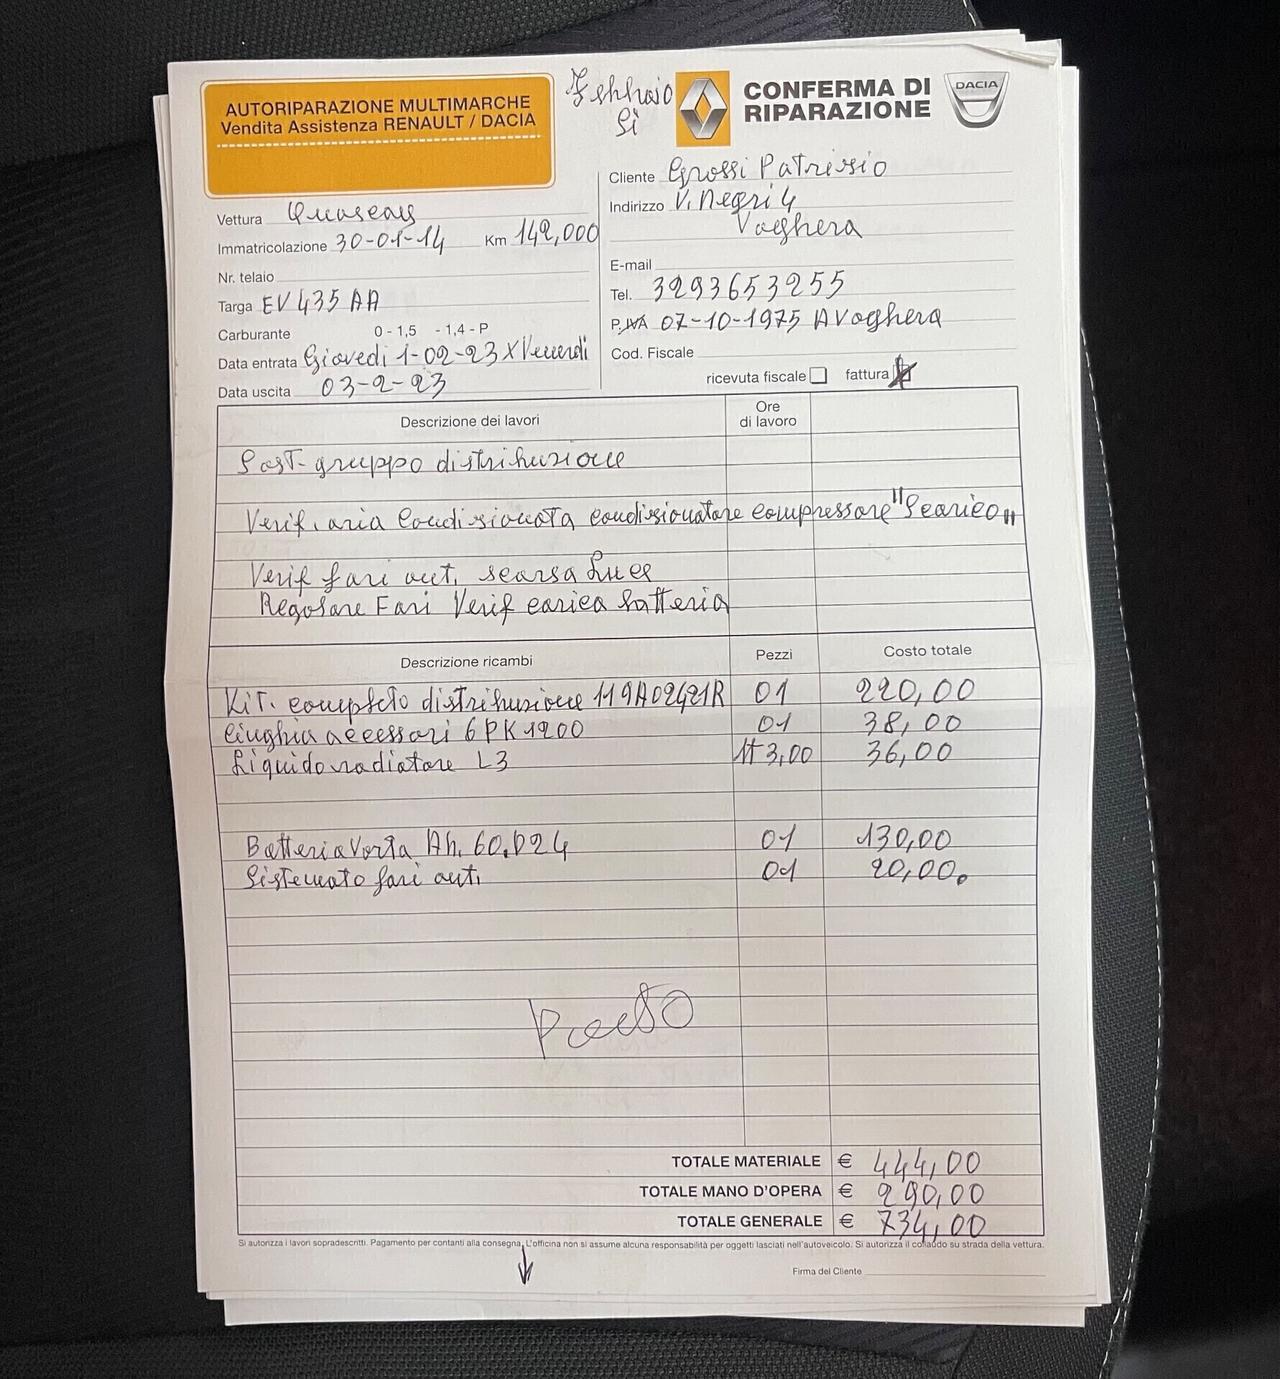 AUTORIPARAZIONE MULTIMARCHE
Vendita Assistenza RENAULT / DACIA
Febbraio
Si
CONFERMA DI
RIPARAZIONE
DACIA
Vettura
Immatricolazione 30-01-14 Km 142,000
Nr. telaio
Targa EV 435 AA
Carburante 0 - 1,5 - 1,4 - P
Data entrata Giovedi 1-02-23 X Venerdi
Data uscita 03-2-23
Cliente Grossi Patrizio
Indirizzo V. Negri 4
Voghera
E-mail
Tel. 3293653255
P. IVA 07-10-1975 A Voghera
Cod. Fiscale
ricevuta fiscale fattura
Descrizione dei lavori Ore di lavoro
Sost. gruppo distribuzione
Verif. aria condizionata condizionatore compressore "Scarico"
Verif fari ant. scarsa Luce
Regolare Fari Verif carica batteria
Descrizione ricambi Pezzi Costo totale
Kit. completo distribuzione 119A02421R 01 220,00
Cinghia accessori 6PK1200 01 38,00
Liquido radiatore L3 3,00 36,00
Batteria Varta Ah. 60. D24 01 130,00
Sistemato fari ant. 01 20,00
TOTALE MATERIALE € 444,00
TOTALE MANO D'OPERA € 290,00
TOTALE GENERALE € 734,00
Si autorizza i lavori sopradescritti. Pagamento per contanti alla consegna. L'officina non si assume alcuna responsabilità per oggetti lasciati nell'autoveicolo. Si autorizza il collaudo su strada della vettura.
Firma del Cliente